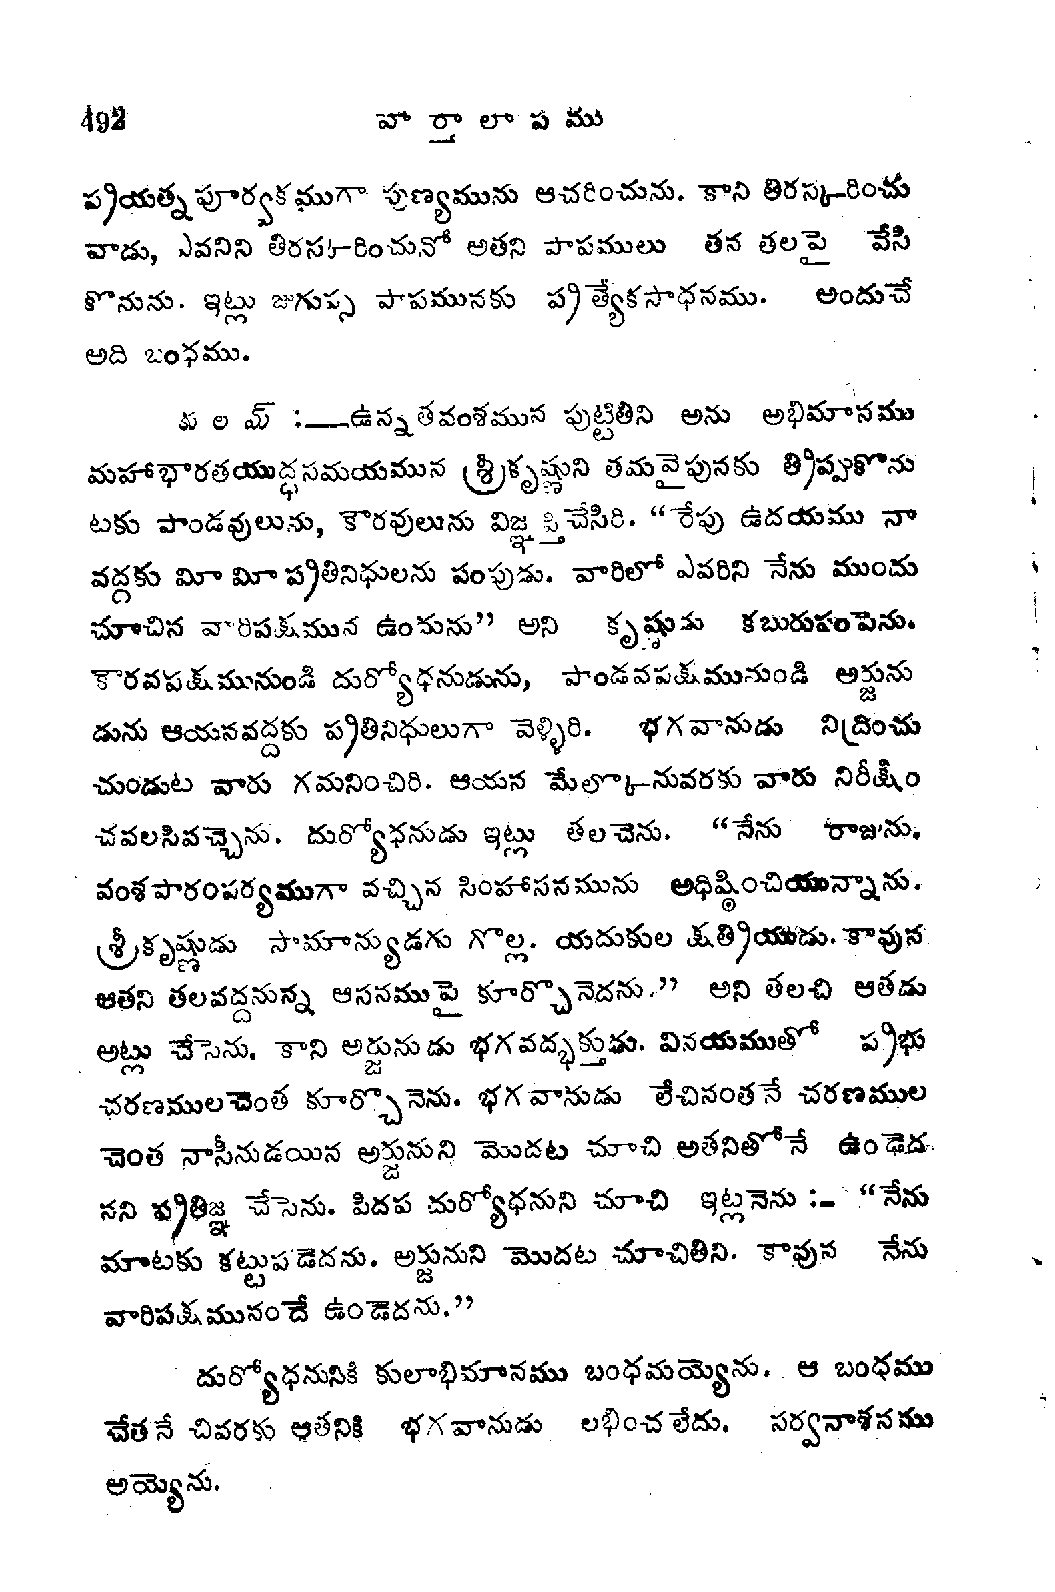 492 వార్తాలాపము
ప్రియత్నపూర్వకముగా పుణ్యమును ఆచరించును. కాని తిరస్కరించు
వాడు, ఎవనిని తిరస్కరించునో అతని పాపములు తన తలపై వేసి
కొనును. ఇట్లు జుగుప్స పాపమునకు ప్రత్యేకసాధనము. అందుచే
అది బంధము.
కులమ్ :—ఉన్నతవంశమున పుట్టితిని అను అభిమానము
మహాభారతయుద్ధసమయమున శ్రీకృష్ణుని తమవైపునకు త్రిప్పుకొను
టకు పాండవులును, కౌరవులును విజ్ఞప్తిచేసిరి. “రేపు ఉదయము నా
వద్దకు మీ మీ ప్రతినిధులను పంపుడు. వారిలో ఎవరిని నేను ముందు
చూచిన వారిపక్షమున ఉందును” అని కృష్ణుడు కబురుపంపెను.
కౌరవపక్షమునుండి దుర్యోధనుడును, పాండవపక్షమునుండి అర్జును
డును ఆయనవద్దకు ప్రతినిధులుగా వెళ్ళిరి. భగవానుడు నిద్రించు
చుండుట వారు గమనించిరి. ఆయన మేల్కొనువరకు వారు నిరీక్షిం
చవలసివచ్చెను. దుర్యోధనుడు ఇట్లు తలచెను. “నేను రాజును,
వంశపారంపర్యముగా వచ్చిన సింహాసనమును అధిష్ఠించియున్నాను.
శ్రీకృష్ణుడు సామాన్యుడగు గొల్ల. యదుకుల క్షత్రియుడు. కావున
ఆతని తలవద్దనున్న ఆసనముపై కూర్చొనెదను.” అని తలచి ఆతడు
అట్లు చేసెను. కాని అర్జునుడు భగవద్భక్తుడు. వినయముతో ప్రభు
చరణములచెంత కూర్చొనెను. భగవానుడు లేచినంతనే చరణముల
చెంత నాసీనుడయిన అర్జునుని మొదట చూచి అతనితోనే ఉండెద
నని ప్రతిజ్ఞ చేసెను. పిదప దుర్యోధనుని చూచి ఇట్లనెను :– “నేను
మాటకు కట్టుపడెదను. అర్జునుని మొదట చూచితిని. కావున నేను
వారిపక్షమునందే ఉండెదను.”
దుర్యోధనునికి కులాభిమానము బంధమయ్యెను. ఆ బంధము
చేతనే చివరకు ఆతనికి భగవానుడు లభించలేదు. సర్వనాశనము
అయ్యెను.